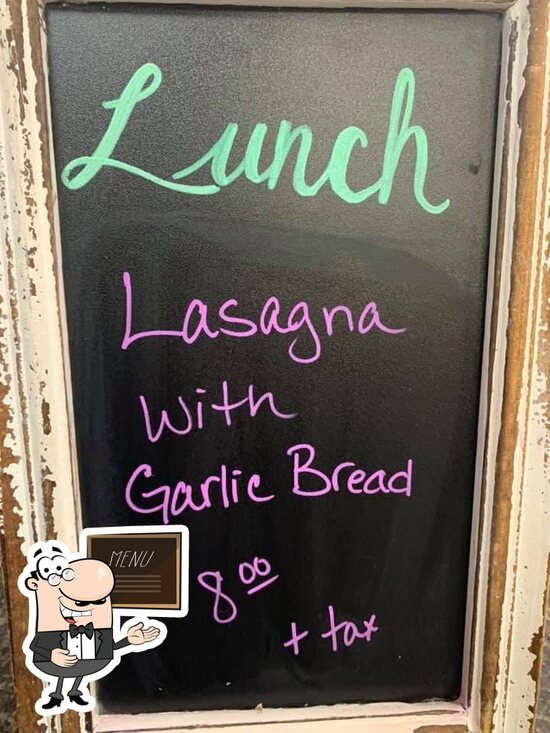 Lunch
Lasagna
With
Garlic Bread
MENU
8.00
+ tax